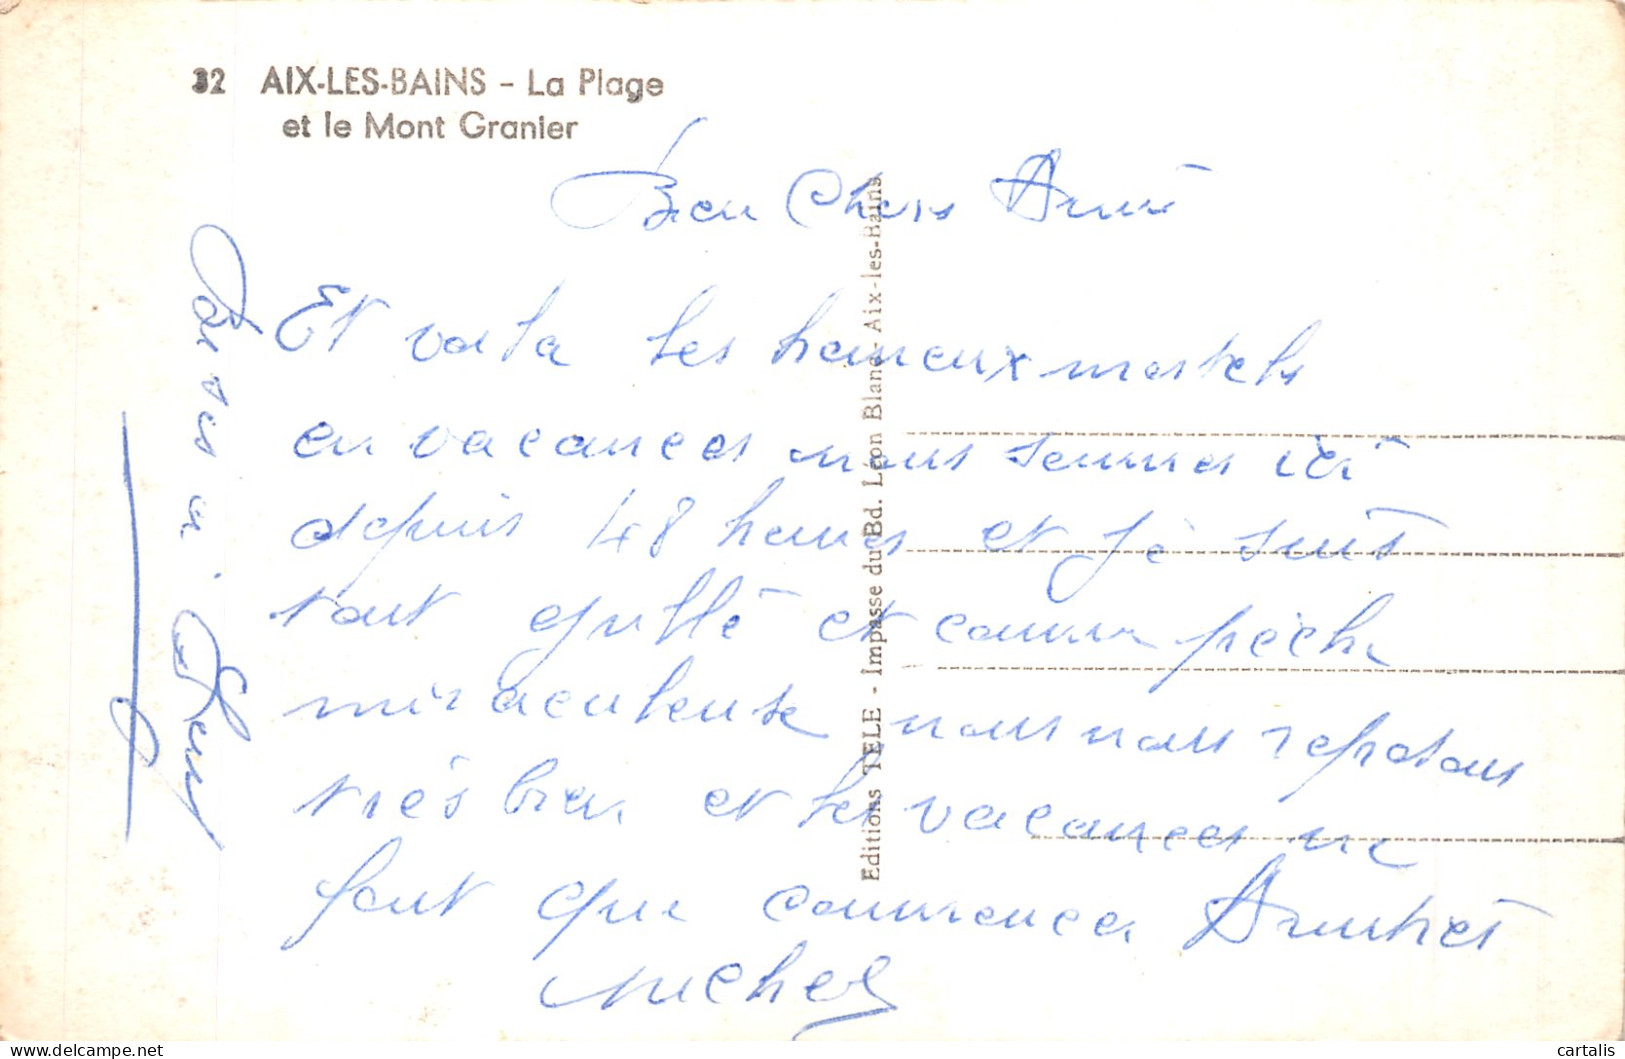 32 AIX-LES-BAINS - La Plage
et le Mont Granier
Bien Chers Amis
Et voila les heureux mortels
en vacances nous sommes ici
depuis 48 heures et je suis
tout et comme pêche
miraculeuse nous nous reposons
très bien et les vacances ne
font que commencer Amitiés
Michel
Editions TELE - Impasse du Bd. Léon Blanc - Aix-les-Bains
cartalis